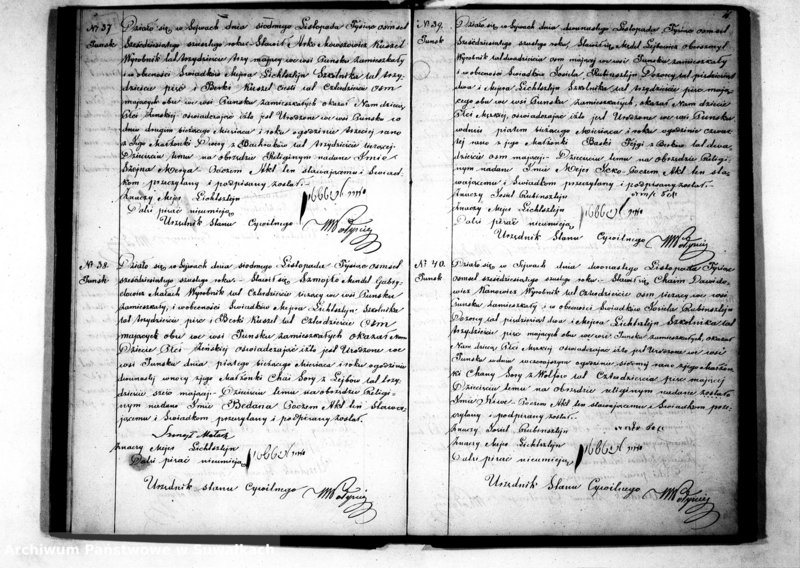 № 37
Punsk
Działo się w Sejwach dnia siodmego Listopada Tysiąc osmset
sześćdziesiątego szóstego roku. Stawił się Arko Kussel
Wyrobnik lat trzydzieście trzy mający we wsi Punsku zamieszkały
i w obecności Swiadków Mejera Lichtsztejn Szkolnika lat trzy
dzieście pięć i Berki Kussel lat Czterdzieście osm
mających obu we wsi Punsku zamieszkałych okazał Nam dziecię
Płci Zeńskiej oświadczając iż to jest Urodzone we wsi Punsku w
dniu drugim bieżącego Miesiąca i roku o godzinie trzeciej rano
z Jego Małżonki
Dziecięciu temu na obrzędzie Religijnym nadano Imie
Szejna Poczem Akt ten stawającemu i Swiad
kom przeczytany i podpisany został.
Znaczy Mejer Lichtsztejn
Dalsi pisać nieumieją
Urzędnik Stanu Cywilnego
№ 38.
Punsk
Działo się w Sejwach dnia siodmego Listopada Tysiąc osmset
sześćdziesiątego szóstego roku. Stawił się Szmojło Mendel
Wyrobnik lat Czterdzieście we wsi Punsku
zamieszkały, i w obecności Swiadków Mejera Lichtsztejn Szkolnika
lat trzydzieście pięć i Berki Kussel lat Czterdzieście Osm
mających obu we wsi Punsku zamieszkałych okazał Nam
Dziecię Płci Zeńskiej oświadczając iż to jest Urodzone we
wsi Punsku dnia piątego bieżącego Miesiąca i roku o godzinie
dwunastej w nocy z Jego Małżonki Chai Sory z Lejbow lat trzy
dzieście sześć mającej. Dziecięciu temu na obrzędzie Religij
nym nadano Imie Poczem Akt ten Stawa
jącemu i Swiadkom przeczytany i podpisany został.
Znaczy Mejer Lichtsztejn
Dalsi pisać nieumieją
Urzędnik stanu Cywilnego
№ 39.
Punsk
Działo się w Sejwach dnia dwunastego Listopada Tysiąc osm
set sześćdziesiątego szóstego roku. Stawił się
Wyrobnik lat dwadzieście osm mający we wsi Punsku zamieszkały
i w obecności Swiadków Josiela Rubinsztejn Dozorcy lat piędziesiąt
dwa i Mejera Lichtsztejn Szkolnika lat trzydzieście pięć mają
cych obu we wsi Punsku zamieszkałych, okazał Nam dziecię
Płci Męzkiej oświadczając iż to jest Urodzone we wsi Punsku
w dniu piątem bieżącego Miesiąca i roku o godzinie czwar
tej rano z jego Małżonki Baski z Berków lat dwa
dzieście osm mającej. Dziecięciu temu na obrzędzie Religij
nym nadano Imie Mejer Icko Poczem Akt ten sta
wającemu i Swiadkom przeczytany i podpisany został.
Znaczy Josiel Rubinsztejn
Znaczy Mejer Lichtsztejn
Dalsi pisać nieumieją
Urzędnik Stanu Cywilnego
№ 40.
Punsk
Działo się w Sejwach dnia dwunastego Listopada Tysiąc
osmset sześćdziesiątego szóstego roku. Stawił się Chaim
Wyrobnik lat Czterdzieście osm mający we wsi
Punsku zamieszkały i w obecności Swiadków Josiela Rubinsztejn
Dozorcy lat piędziesiąt dwa i Mejera Lichtsztejn Szkolnika lat
trzydzieście pięć mających obu we wsi Punsku zamieszkałych, okazał
Nam dziecię Płci Męzkiej oświadczając iż to jest urodzone we wsi
Punsku w dniu wczorajszym o godzinie siodmej rano z jego Małżon
ki Chany Sory z Wolfow lat Czterdzieście pięć mającej
Dziecięciu temu na obrzędzie religijnym nadane zostało
Imie Poczem Akt ten stawającemu i Swiadkom prze
czytany i podpisany został.
Znaczy Josiel Rubinsztejn
Znaczy Mejer Lichtsztejn
Dalsi pisać nieumieją
Urzędnik Stanu Cywilnego
Archiwum Państwowe w Suwałkach